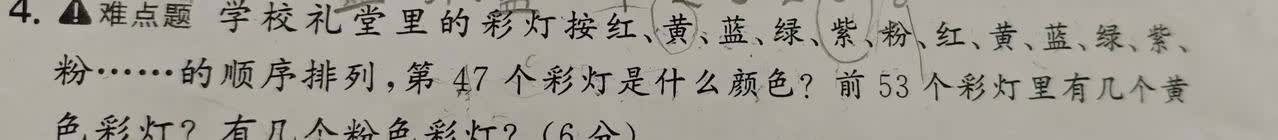 4. 难点题 学校礼堂里的彩灯按红、黄、蓝、绿、紫、粉、红、黄、蓝、绿、紫、
粉……的顺序排列,第 47 个彩灯是什么颜色? 前 53 个彩灯里有几个黄
色彩灯? 有几个粉色彩灯? (6 分)